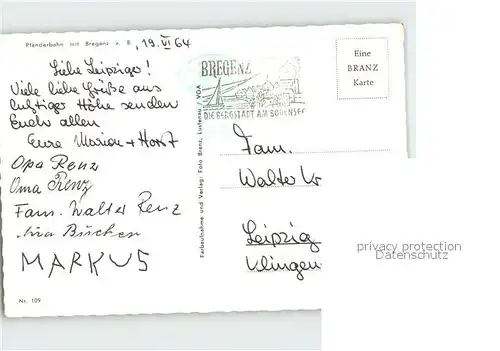 Pfänderbahn mit Bregenz a. B.
, 19. VI 64
Liebe Leipziger!
Viele liebe Grüße aus
luftiger Höhe senden
Euch allen
Eure Marion + Horst
Opa Renz
Oma Renz
Fam. Walter Renz
MARKUS
Nr. 109
Farbaufnahme und Verlag: Foto Branz, Lustenau / VOA
BREGENZ
DIE BERGSTADT AM BODENSEE
Eine
BRANZ
Karte
Fam.
Walter Kr
Leipzig
Klingen
privacy protection
Datenschutz